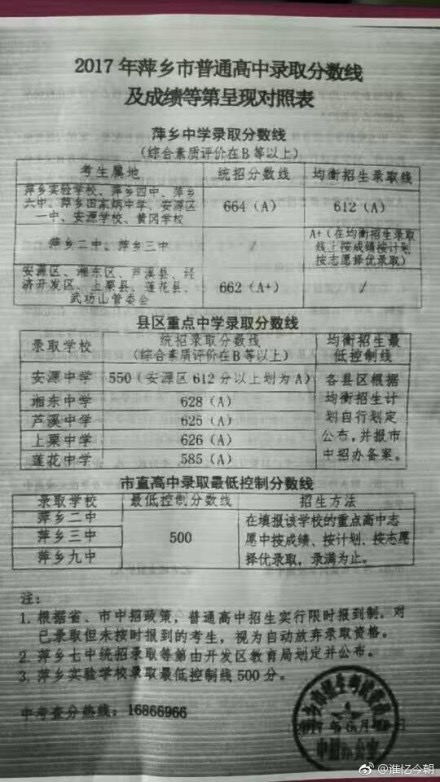 2017年萍乡市普通高中录取分数线
及成绩等第呈现对照表
萍乡中学录取分数线
(综合素质评价在B等以上)
考生属地 统招分数线 均衡招生录取线
萍乡实验学校、萍乡四中、萍乡
六中、萍乡田家炳中学、安源区
一中、安源学校、黄冈学校
664(A) 612(A)
萍乡二中、萍乡三中 /
A+(在均衡招生录取
线上按成绩按计划
按志愿择优录取)
安源区、湘东区、芦溪县、经
济开发区、上栗县、莲花县、
武功山管委会
662(A+) /
县区重点中学录取分数线
录取学校
统招录取分数线
(综合素质评价在B等以上)
均衡招生最
低控制线
安源中学 550(安源区612分以上划为A)
湘东中学 628(A)
芦溪中学 625(A)
上栗中学 626(A)
莲花中学 585(A)
各县区根据
均衡招生计
划自行划定
公布,并报市
中招办备案。
市直高中录取最低控制分数线
录取学校 最低控制分数线 招生方法
萍乡二中
萍乡三中
萍乡九中
500
在填报该学校的重点高中志
愿中按成绩、按计划、按志愿
择优录取,录满为止。
注:
1.根据省、市中招政策,普通高中招生实行限时报到制,对
已录取但未按时报到的考生,视为自动放弃录取资格。
2.萍乡七中统招录取等第由开发区教育局划定并公布。
3.萍乡实验学校录取最低控制线500分。
中考查分热线:16866966
@淮忆今朝